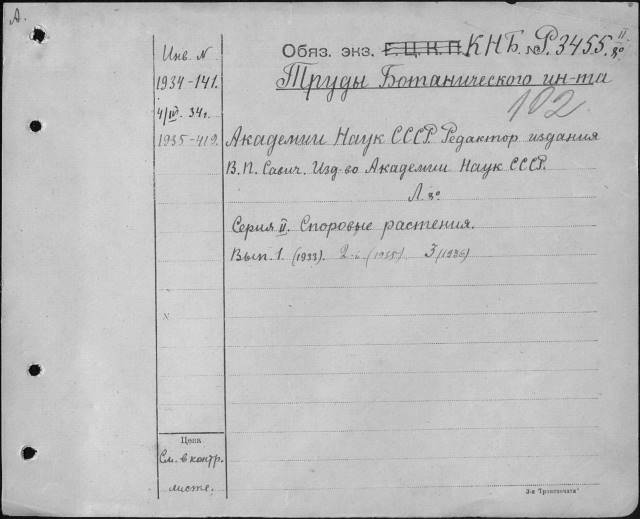 А.
Инв. N
1934-141.
4/IV. 34г.
1935-419.
Обяз. экз. Г. Ц. К. П. КНБ. № Р. 3455. II 8°
Труды Ботанического ин-та
102.
Академии Наук СССР. Редактор издания
В. П. Савич. Изд-во Академии Наук СССР.
Л. 8°
Серия II. Споровые растения.
Вып. 1. (1933). 2-й (1935). 3 (1936)
N
Цена
См. в контр.
листе.
3-я "Транспечать"